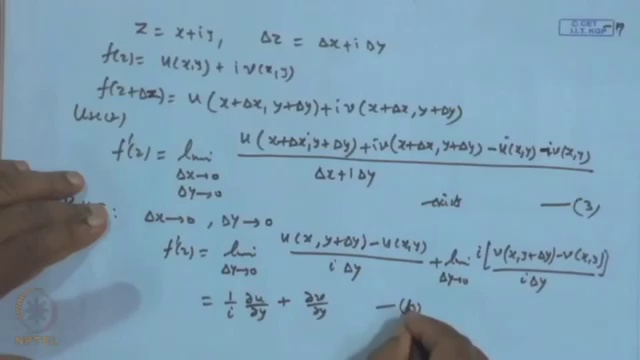 © CET
I.I.T. KGP
Z = x+iy, Δz = Δx+iΔy
f(z)= u(x,y) + i v(x,y)
f(z+Δz)= u(x+Δx, y+Δy)+i v(x+Δx, y+Δy)
f'(z) = lim Δx→0 Δy→0 u(x+Δx, y+Δy)+iv(x+Δx, y+Δy) - u(x,y) - iv(x,y) / Δx+iΔy —(3)
: Δx→0, Δy→0
f'(z) = lim Δy→0 u(x, y+Δy) - u(x,y) / iΔy + lim Δy→0 i[v(x, y+Δy) - v(x,y)] / iΔy
= 1/i ∂u/∂y + ∂v/∂y